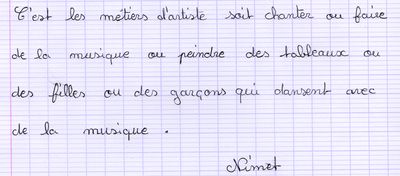 C'est les métiers d'artiste soit chanter ou faire
de la musique ou peindre des tableaux ou
des filles ou des garçons qui dansent avec
de la musique .
Nimet